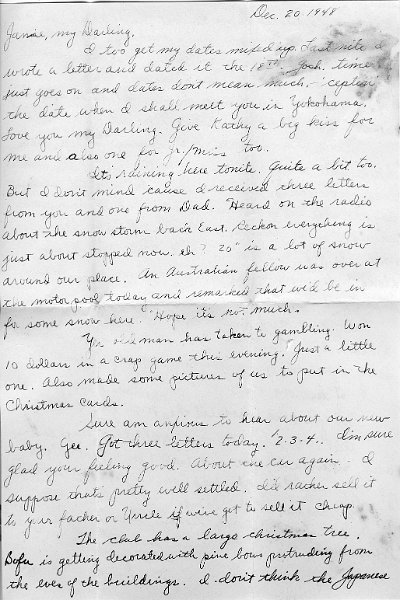 Dec. 20 1948
Janie, my Darling,
I too get my dates mixed up. Last nite I
wrote a letter and dated it the 18th. Gosh, time
just goes on and dates don't mean much, 'ceptin
the date when I shall meet you in Yokohama.
Love you my Darling. Give Kathy a big kiss for
me and also one for Jr/Miss too.
It's raining here tonite. Quite a bit too.
But I don't mind cause I received three letters
from you and one from Dad. Heard on the radio
about the snow storm back East. Reckon everything is
just about stopped now, eh? 20" is a lot of snow
around our place. An Australian fellow was over at
the motor pool today and remarked that we'd be in
for some snow here. Hope it's not much.
Yr old man has taken to gambling. Won
10 dollars in a crap game this evening. Just a little
one. Also made some pictures of us to put in the
Christmas cards.
Sure am anxious to hear about our new
baby. Gee. Got three letters today. #2-3-4. I'm sure
glad your feeling good. About the car again - I
suppose that's pretty well settled. I'd rather sell it
to your father or Uncle if we've got to sell it cheap.
The club has a large christmas tree.
is getting decorated with pine bows protruding from
the eves of the buildings. I don't think the Japanese